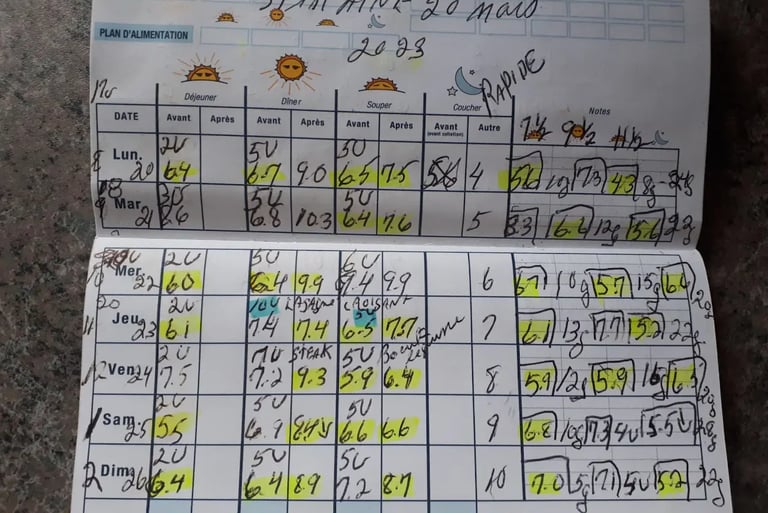 SEMAINE 20 MARS
PLAN D'ALIMENTATION
2023
RAPIDE
Déjeuner Dîner Souper Coucher Notes
DATE Avant Après Avant Après Avant Après Avant Autre 7 1/2 9 1/2 11 1/2
(avant collation)
2U 5U 5U
Lun. 20 6.4 6.7 9.0 6.5 7.5 4 5.6 10g 7.3 4.3 8g
5U 5U
Mar. 21 8.6 6.8 10.3 6.4 7.6 5 8.3 6.4 12g 5.6 22g
2U 5U 6U
Mer. 22 6.0 6.4 9.9 7.4 9.9 6 6.1 10g 5.7 15g 6.4
2U 10U LASAGNE CROISSANT
5U
Jeu. 23 6.1 7.4 7.4 6.5 7.7 7 6.1 13g 7.7 5.2 22g
2U 7U STEAK 5U
Ven. 24 7.5 7.2 9.3 5.9 6.4 8 5.9 12g 5.9 16g 6.3 12g
2U 5U 5U
Sam. 25 5.5 6.9 6.6 6.6 9 6.8 10g 7.3 4U 5.5 28g
2U 5U 5U
Dim. 26 6.4 6.4 8.9 7.2 8.7 10 7.0 5g 7.1 5U 5.2 22g